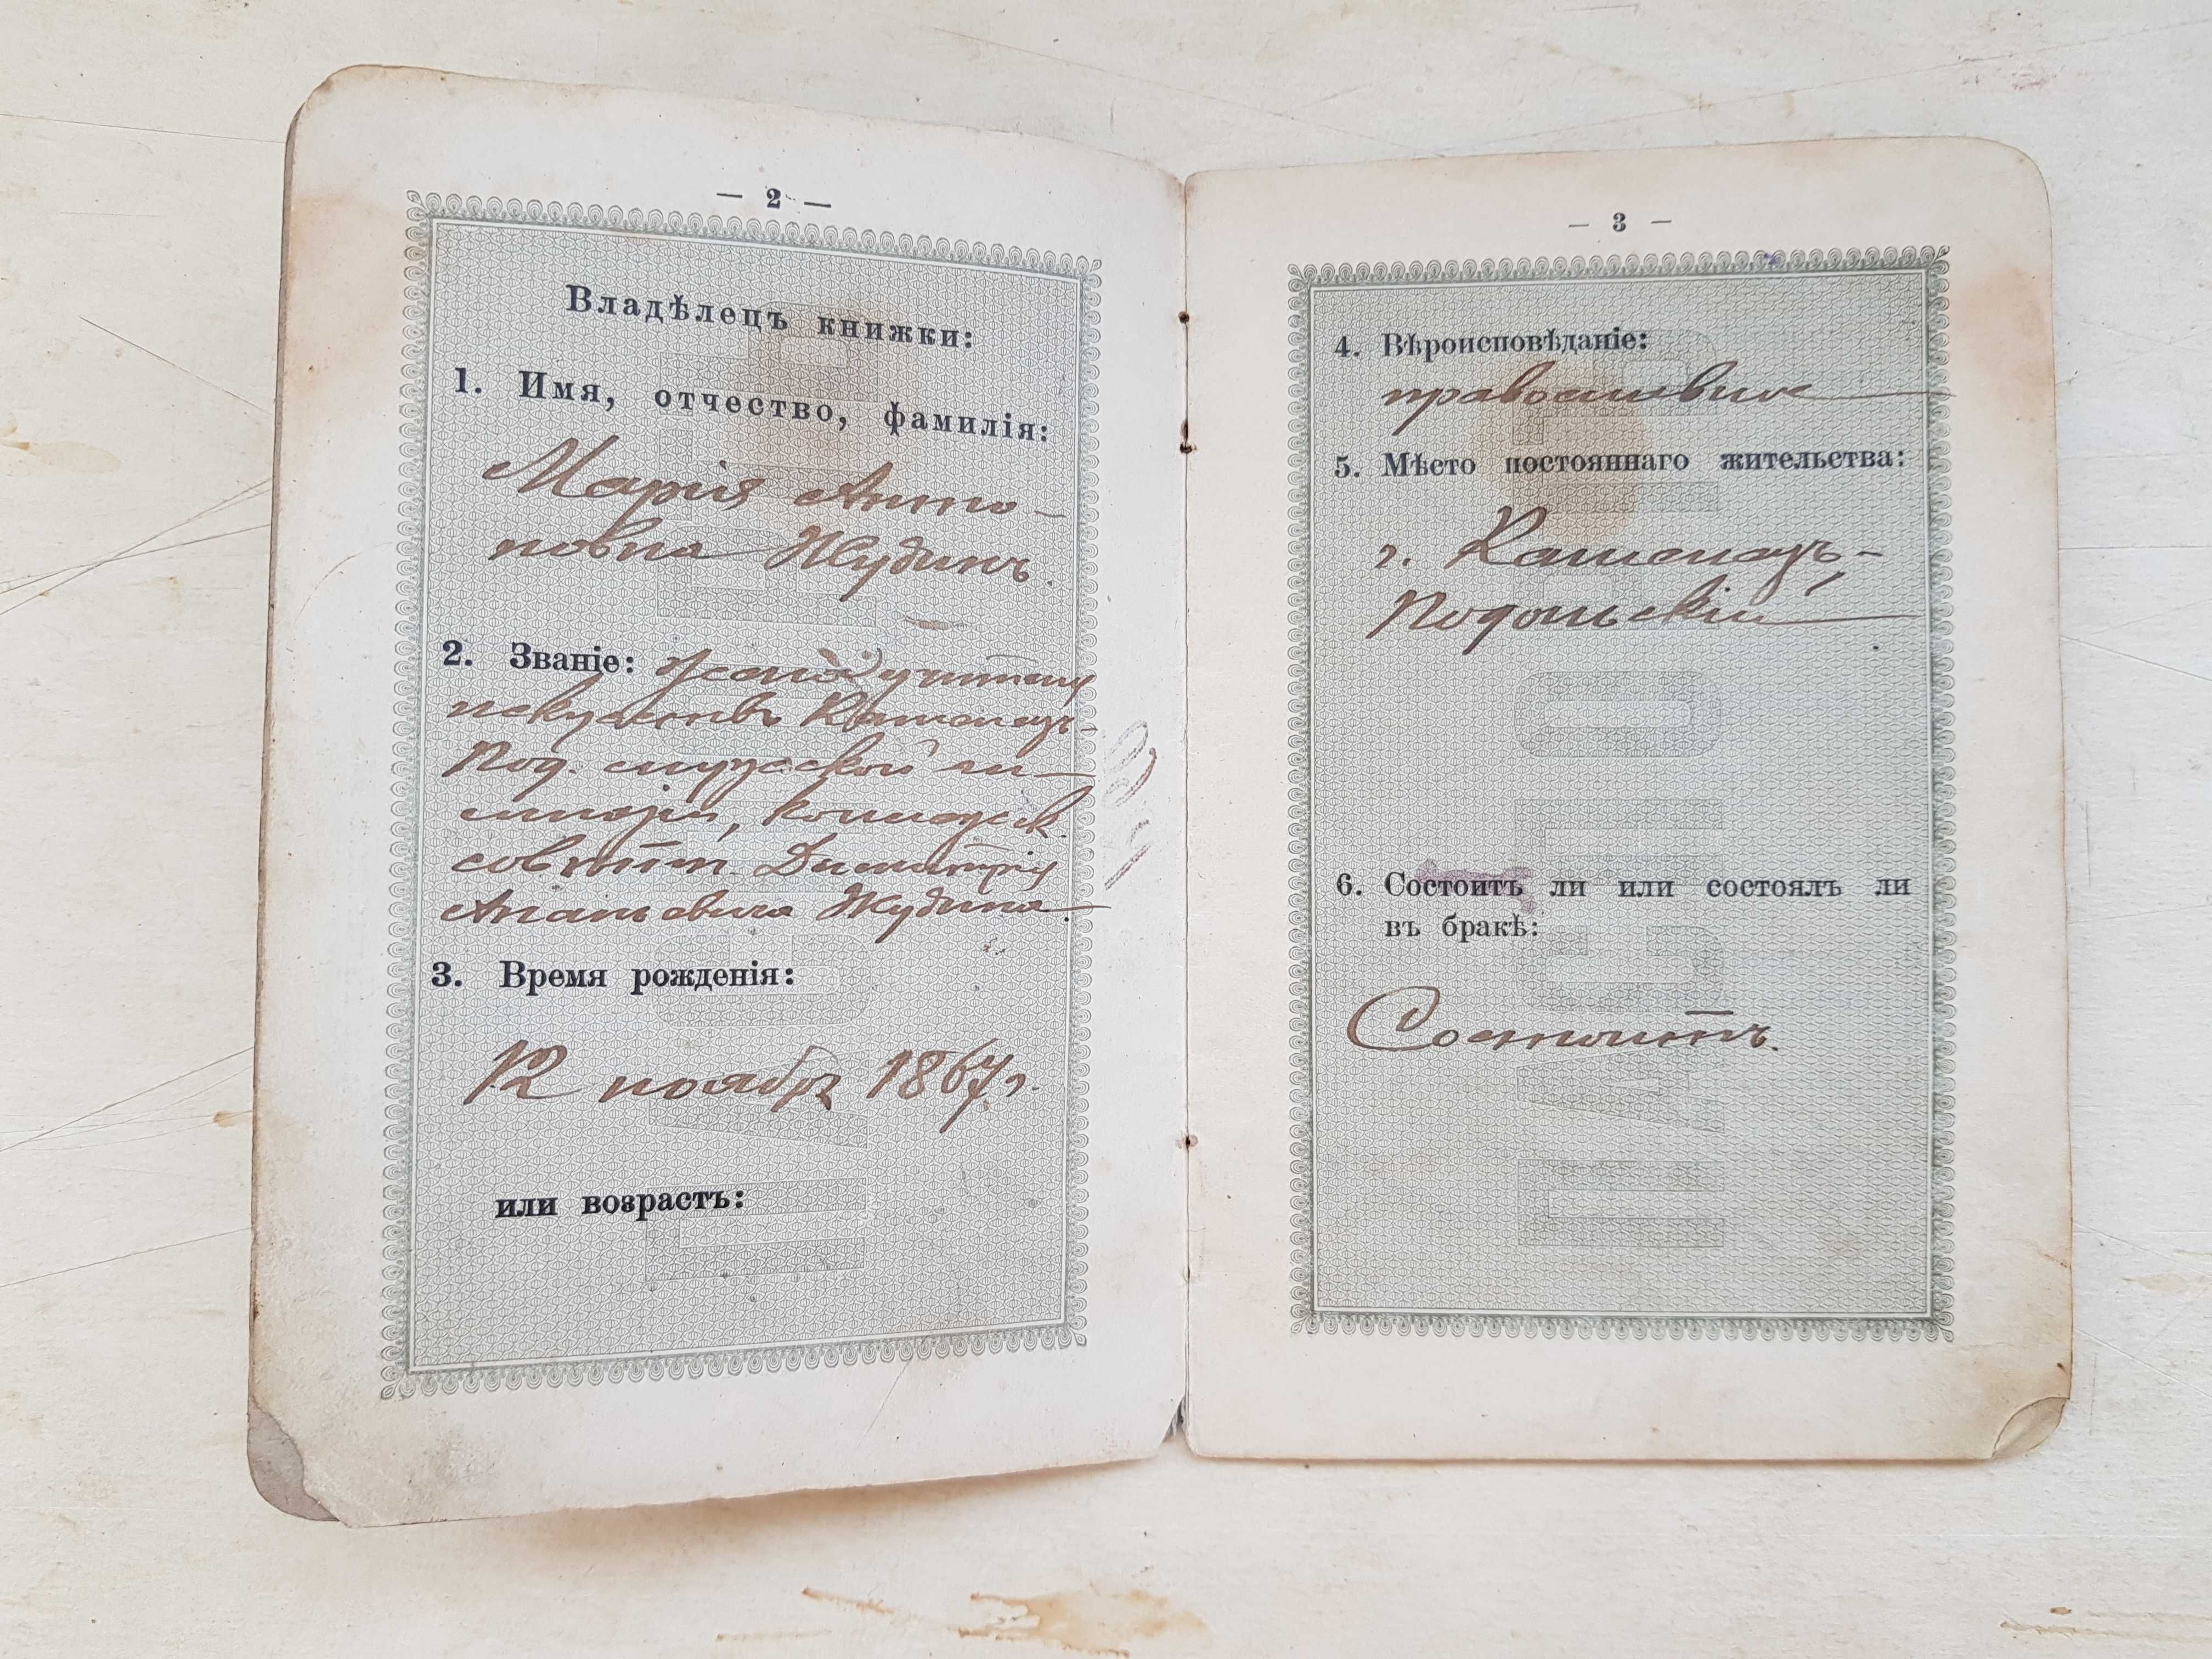 — 2 —
Владѣлецъ книжки:
1. Имя, отчество, фамилія:
Марія Анто-
новна Жудинъ.
2. Званіе: жена учителя
искусствъ Каменецъ-
Под. мужской ги-
мназіи, коллежск.
совѣтн. Димитрія
Жудина.
3. Время рожденія:
12 ноября 1867 г.
или возрастъ:
— 3 —
4. Вѣроисповѣданіе:
православное
5. Мѣсто постояннаго жительства:
г. Каменецъ-
Подольскій
6. Состоитъ ли или состоялъ ли
въ бракѣ:
Состоитъ.